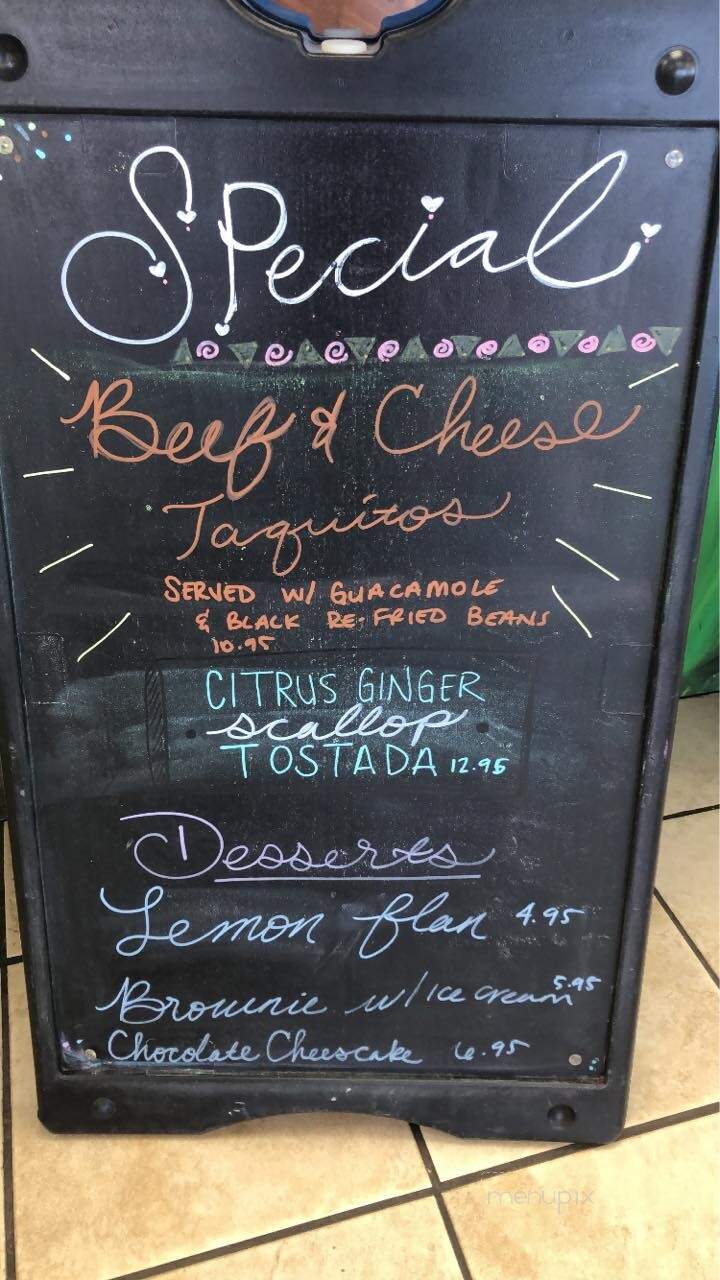 SPecial
Beef & Cheese
Taquitos
SERVED W/ GUACAMOLE
& BLACK RE-FRIED BEANS
10.95
CITRUS GINGER
scallop
TOSTADA 12.95
Desserts
Lemon flan 4.95
Brownie w/ ice cream 5.95
Chocolate Cheescake 6.95
menupix